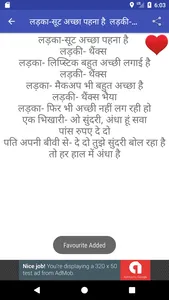 6:03
लड़का-सूट अच्छा पहना है  लड़की-...
लड़का-सूट अच्छा पहना है
लड़की- थैंक्स
लड़का- लिप्स्टिक बहुत अच्छी लगाई है
लड़की- थैंक्स
लड़का- मैकअप भी बहुत अच्छा है
लड़की- थैंक्स भैया
लड़का- फिर भी अच्छी नहीं लग रही हो
एक भिखारी- ओ सुंदरी, अंधा हूं सवा
पांस रुपए दे दो
पति अपनी बीवी से- दे दो तुझे सुंदरी बोल रहा है
तो हर हाल में अंधा है
Favourite Added
Nice job! You're displaying a 320 x 50
test ad from AdMob.
AdMob by Google